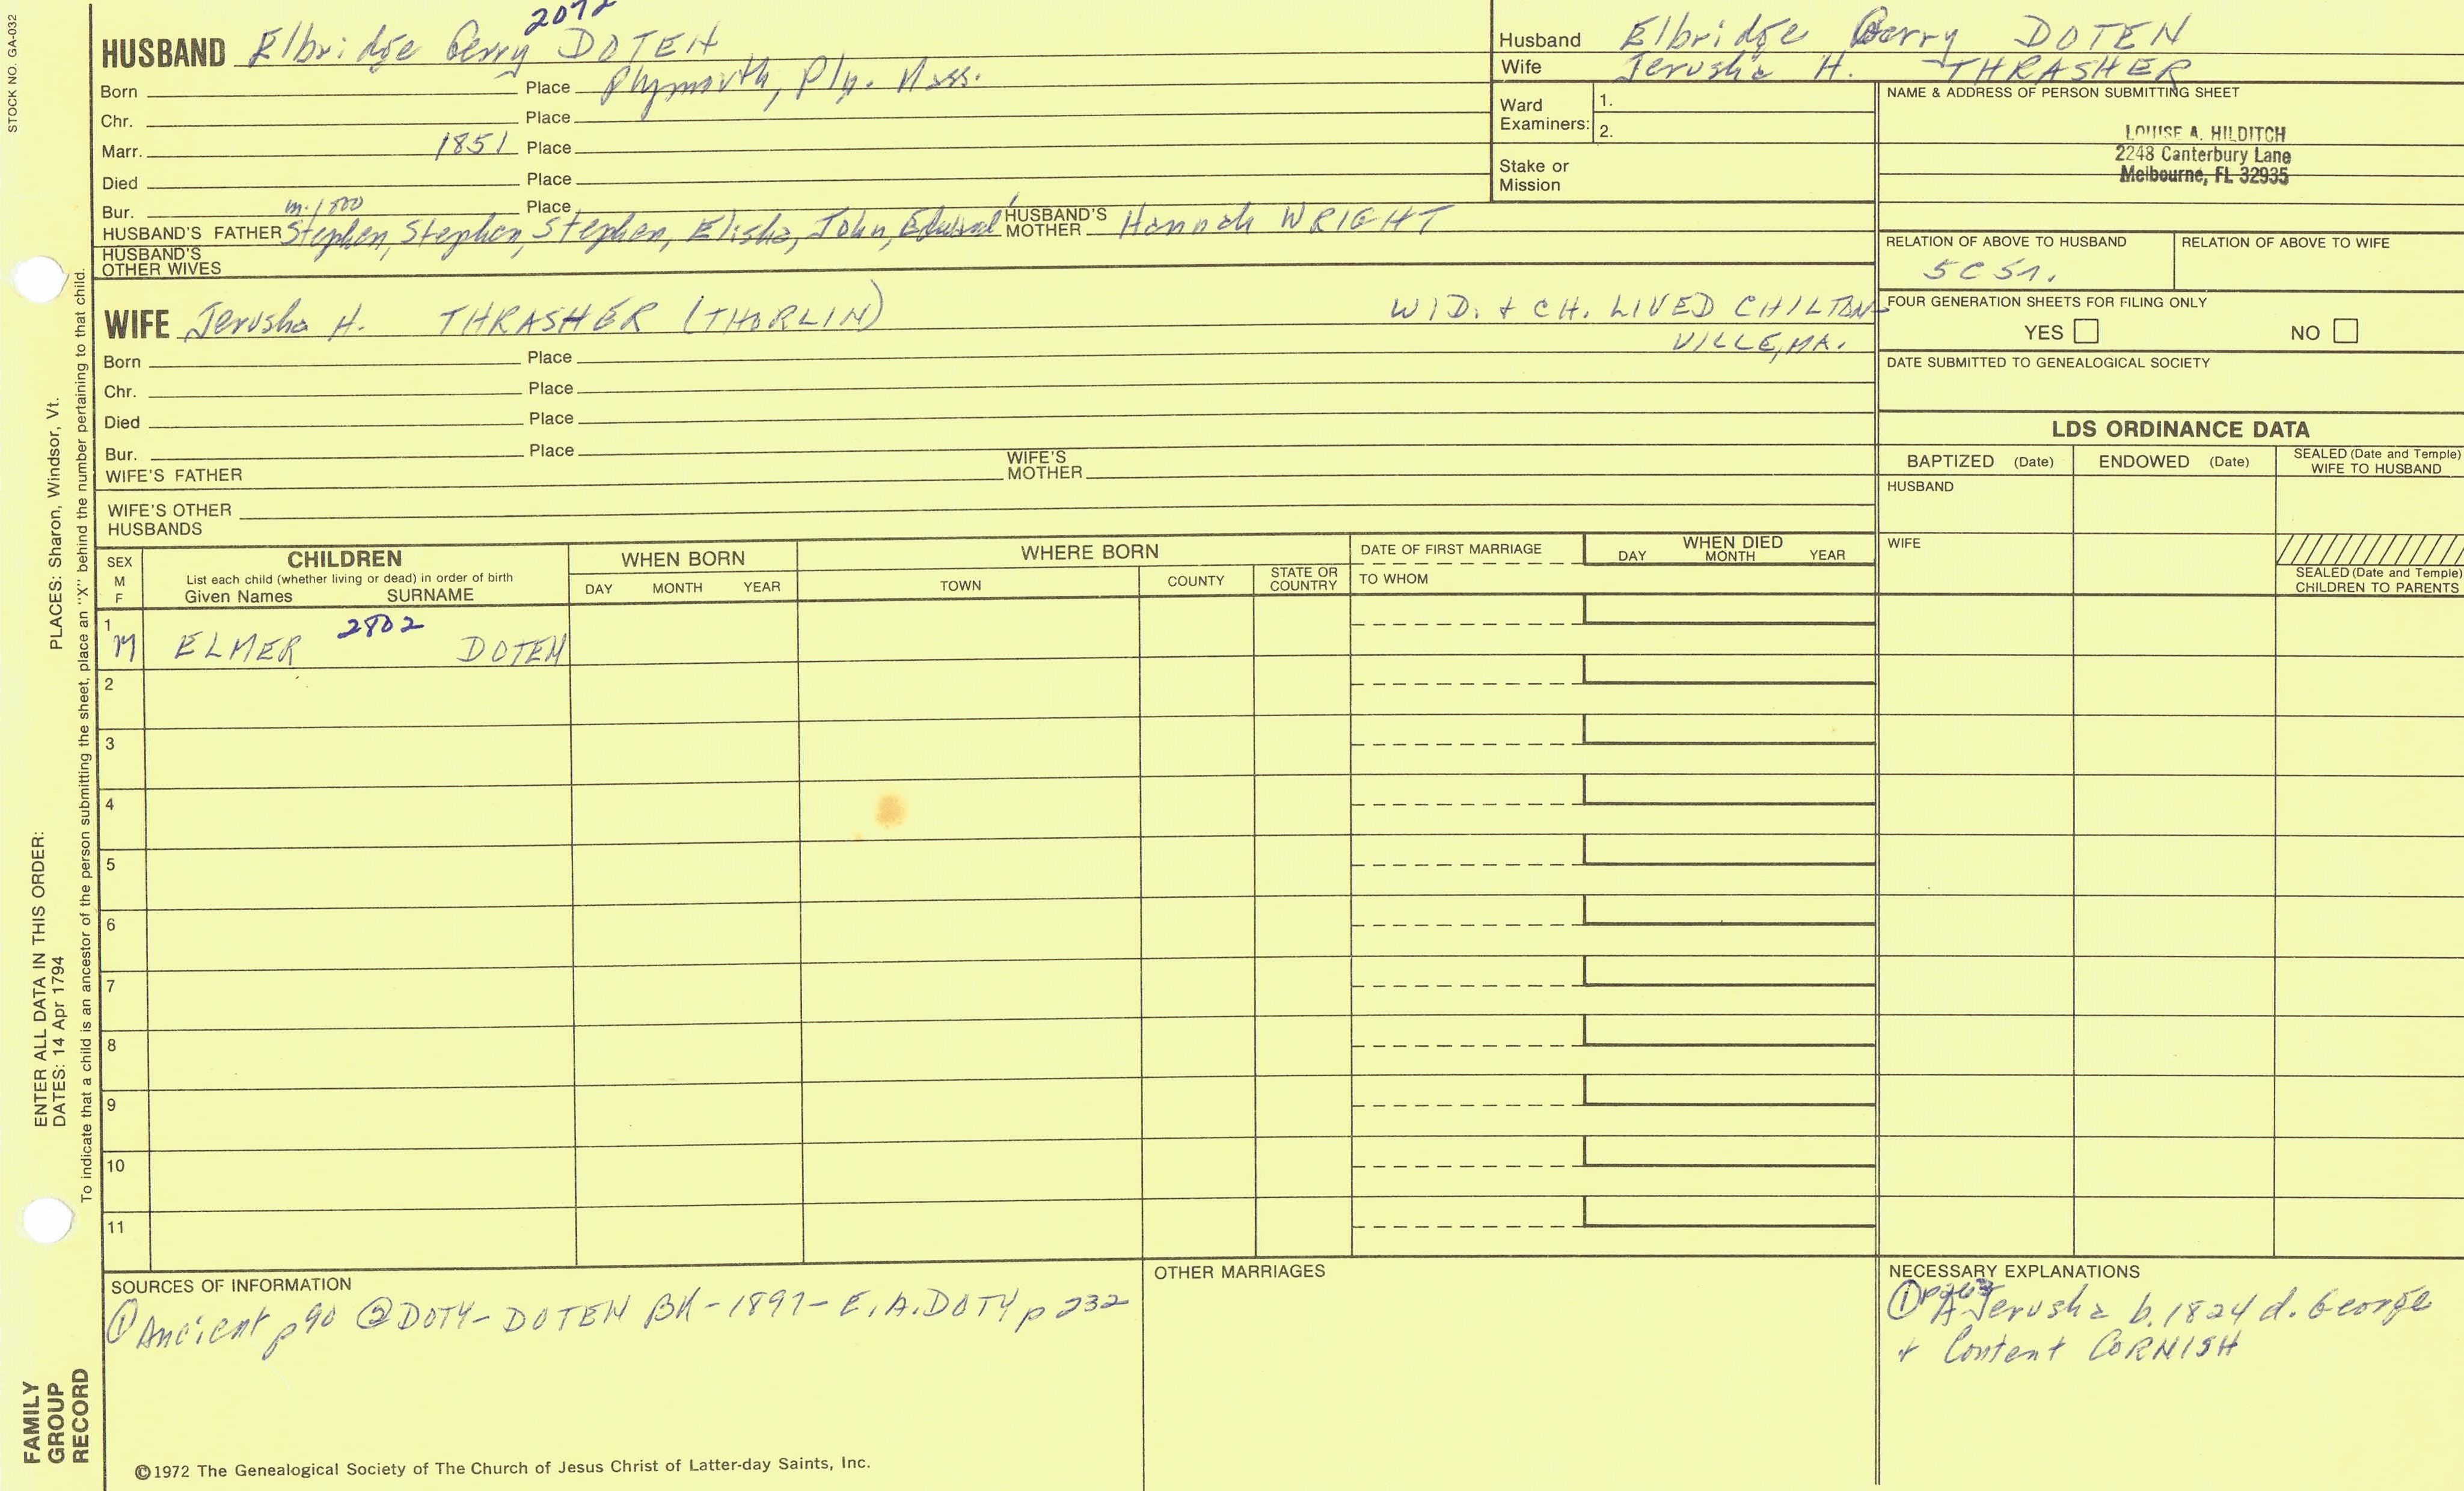 STOCK NO. GA-032
2072
HUSBAND Elbridge Gerry DOTEN
Born Place Plymouth, Ply. Mass.
Chr. Place
Marr. 1851 Place
Died Place
Bur. Place
m. 1800
HUSBAND'S FATHER Stephen, Stephen, Stephen, Elisha, John, Edward HUSBAND'S MOTHER Hannah WRIGHT
HUSBAND'S OTHER WIVES
WIFE Jerusha H. THRASHER (THORLIN) WID. + CH. LIVED CHILTON-
VILLE, MA.
Born Place
Chr. Place
Died Place
Bur. Place
WIFE'S FATHER WIFE'S MOTHER
WIFE'S OTHER HUSBANDS
Husband Elbridge Gerry DOTEN
Wife Jerusha H. THRASHER
Ward Examiners: 1.
2.
Stake or Mission
NAME & ADDRESS OF PERSON SUBMITTING SHEET
LOUISE A. HILDITCH
2248 Canterbury Lane
Melbourne, FL 32935
RELATION OF ABOVE TO HUSBAND RELATION OF ABOVE TO WIFE
5C5r.
FOUR GENERATION SHEETS FOR FILING ONLY
YES NO
DATE SUBMITTED TO GENEALOGICAL SOCIETY
LDS ORDINANCE DATA
BAPTIZED (Date) ENDOWED (Date) SEALED (Date and Temple) WIFE TO HUSBAND
HUSBAND
WIFE
SEALED (Date and Temple) CHILDREN TO PARENTS
SEX M F
CHILDREN
List each child (whether living or dead) in order of birth
Given Names SURNAME
WHEN BORN
DAY MONTH YEAR
WHERE BORN
TOWN COUNTY STATE OR COUNTRY
DATE OF FIRST MARRIAGE
TO WHOM
WHEN DIED
DAY MONTH YEAR
1 2802
M ELMER DOTEN
2
3
4
5
6
7
8
9
10
11
SOURCES OF INFORMATION
① Ancient p90 ② DOTY-DOTEN BK-1897-E.A.DOTY p 232
OTHER MARRIAGES
NECESSARY EXPLANATIONS
① p263
A Jerusha b. 1824 d. George
+ Content CORNISH
©1972 The Genealogical Society of The Church of Jesus Christ of Latter-day Saints, Inc.
PLACES: Sharon, Windsor, Vt.
To indicate that a child is an ancestor of the person submitting the sheet, place an "X" behind the number pertaining to that child.
ENTER ALL DATA IN THIS ORDER:
DATES: 14 Apr 1794
FAMILY
GROUP
RECORD